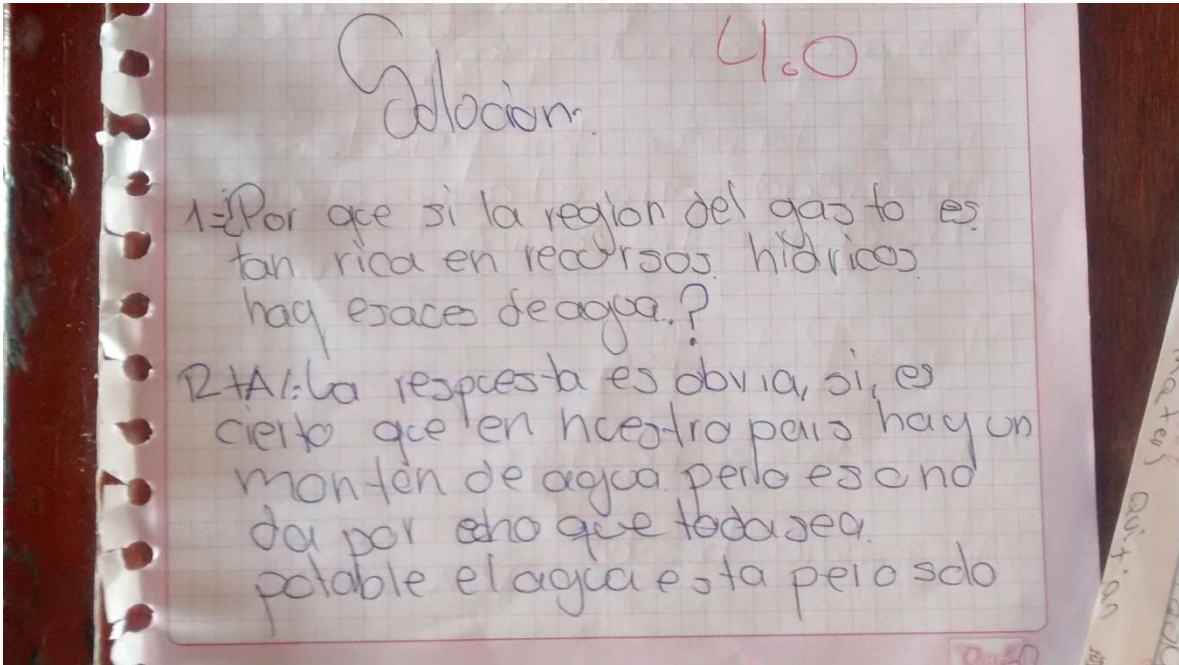 4.0
Solocion.
1=¿Por que si la region del gasto es
tan rica en recursos hidricos
hay esaces de agua.?
RtA/: La respuesta es obvia, si, es
cierto que en nuestro pais hay un
montón de agua pero eso no
da por echo que toda sea.
potable el agua esta pero solo